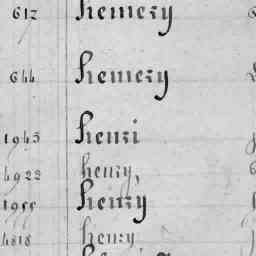 612 hemery
644 hemery
1945 henri
4922 henry,
1955 henry
4818 henry